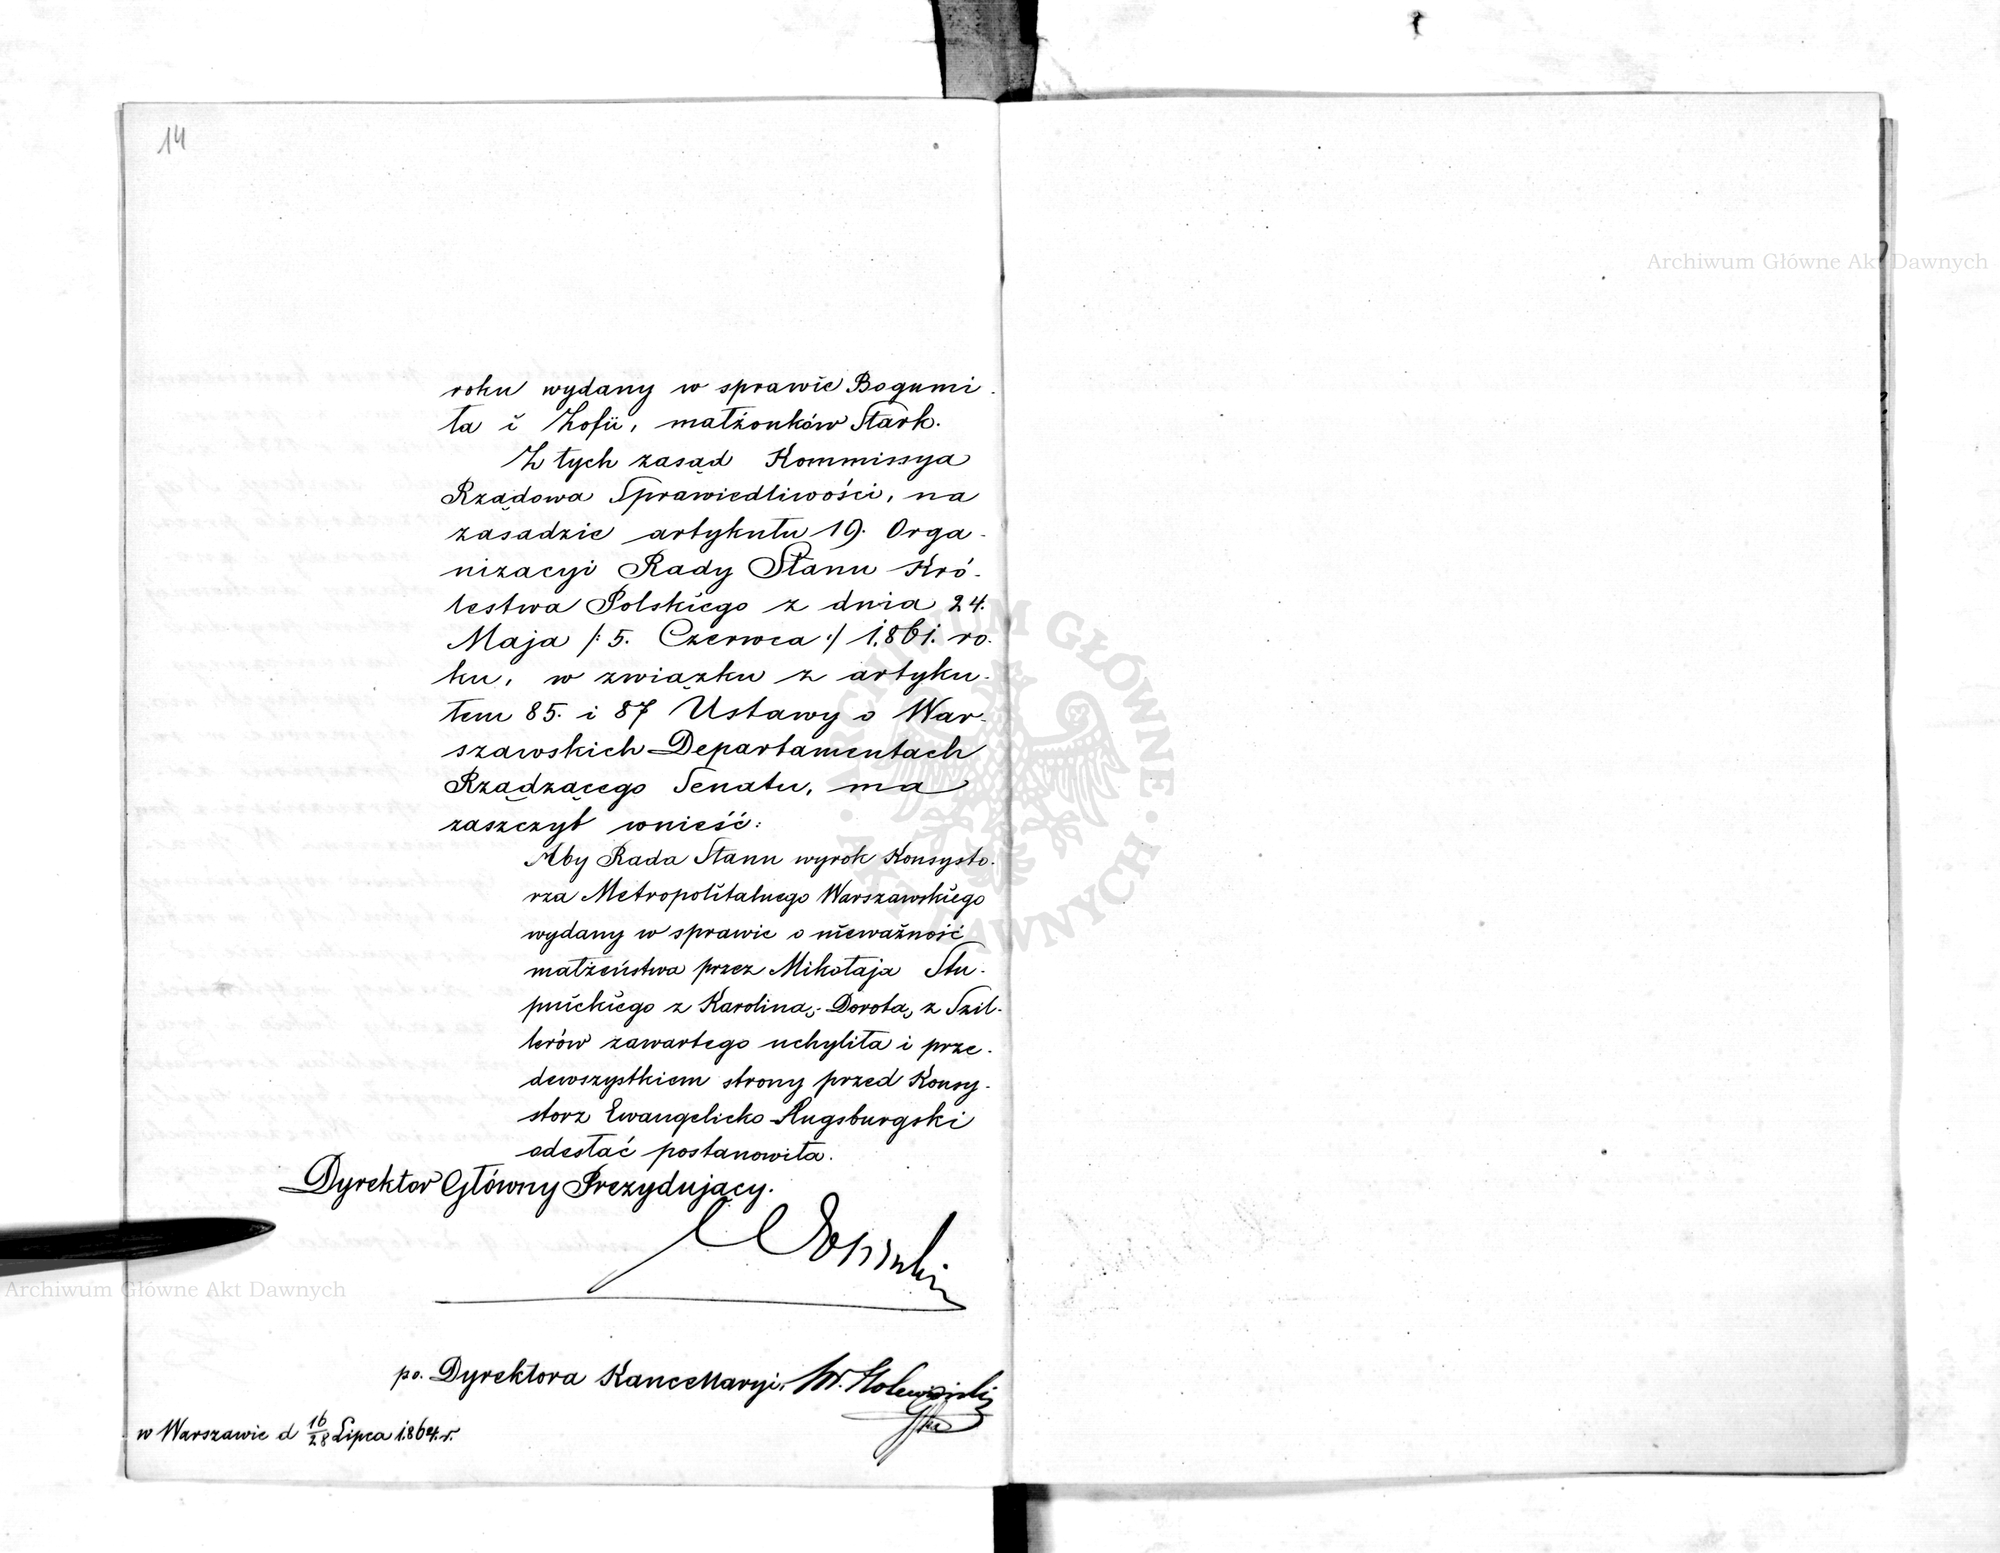 14
roku wydany w sprawie Bogumi-
ła i Zofii, małżonków Stark.
Z tych zasad Kommissya
Rządowa Sprawiedliwości, na
zasadzie artykułu 19. Orga-
nizacyi Rady Stanu Kró-
lestwa Polskiego z dnia 24.
Maja /: 5. Czerwca :/ 1861. ro-
ku, w związku z artyku-
łem 85. i 87 Ustawy o War-
szawskich Departamentach
Rządzącego Senatu, ma
zaszczyt wnieść:
Aby Rada Stanu wyrok Konsysto-
rza Metropolitalnego Warszawskiego
wydany w sprawie o nieważność
małżeństwa przez Mikołaja Stu-
pnickiego z Karoliną-Dorotą z Szil-
lerów zawartego uchyliła i prze-
dewszystkiem strony przed Konsy-
storz Ewangelicko-Augsburgski
odesłać postanowiła.
Dyrektor Główny Prezydujący.
po. Dyrektora Kancellaryi, W.
w Warszawie d 16/28 Lipca 1864. r.
Archiwum Główne Akt Dawnych
Archiwum Główne Akt Dawnych
ARCHIWUM GŁÓWNE AKT DAWNYCH